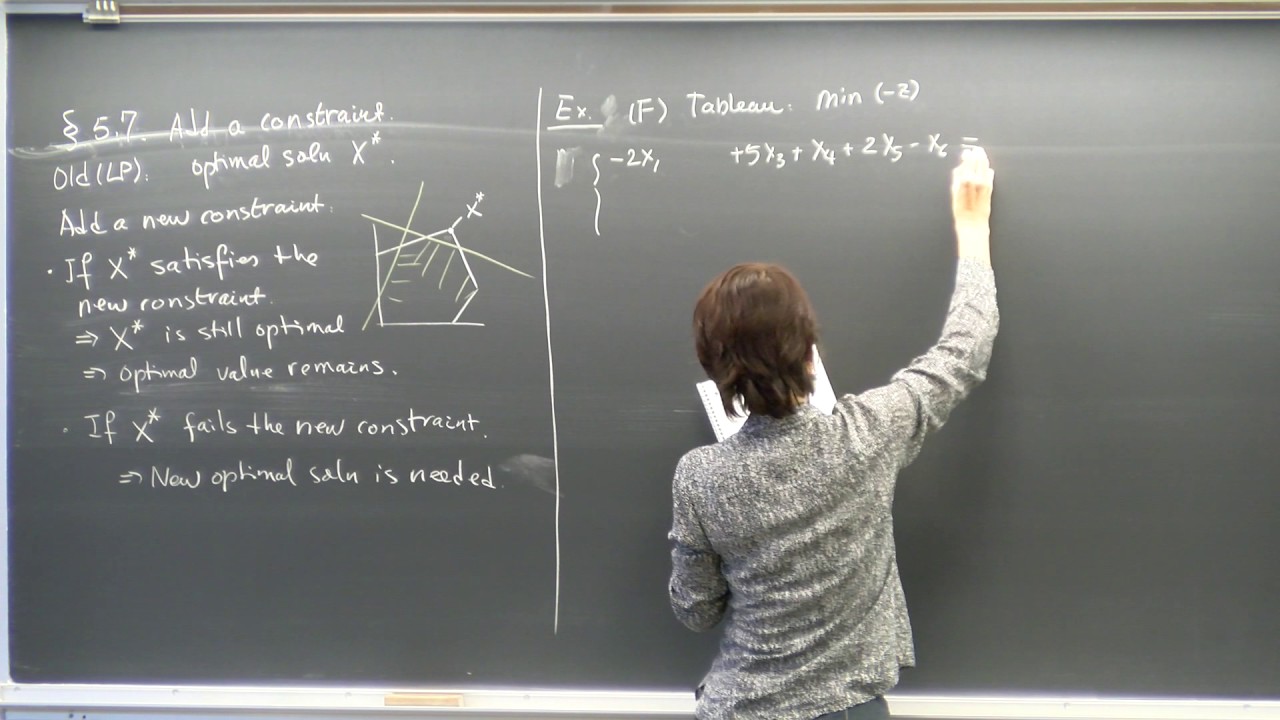 § 5.7. Add a constraint.
Old (LP): optimal soln X*.
Add a new constraint:
· If X* satisfies the
new constraint.
⇒ X* is still optimal
⇒ optimal value remains.
· If X* fails the new constraint.
⇒ New optimal soln is needed.
X*
Ex. (F) Tableau: min (-z)
{ -2x₁ +5x₃ + x₄ + 2x₅ - x₆ =